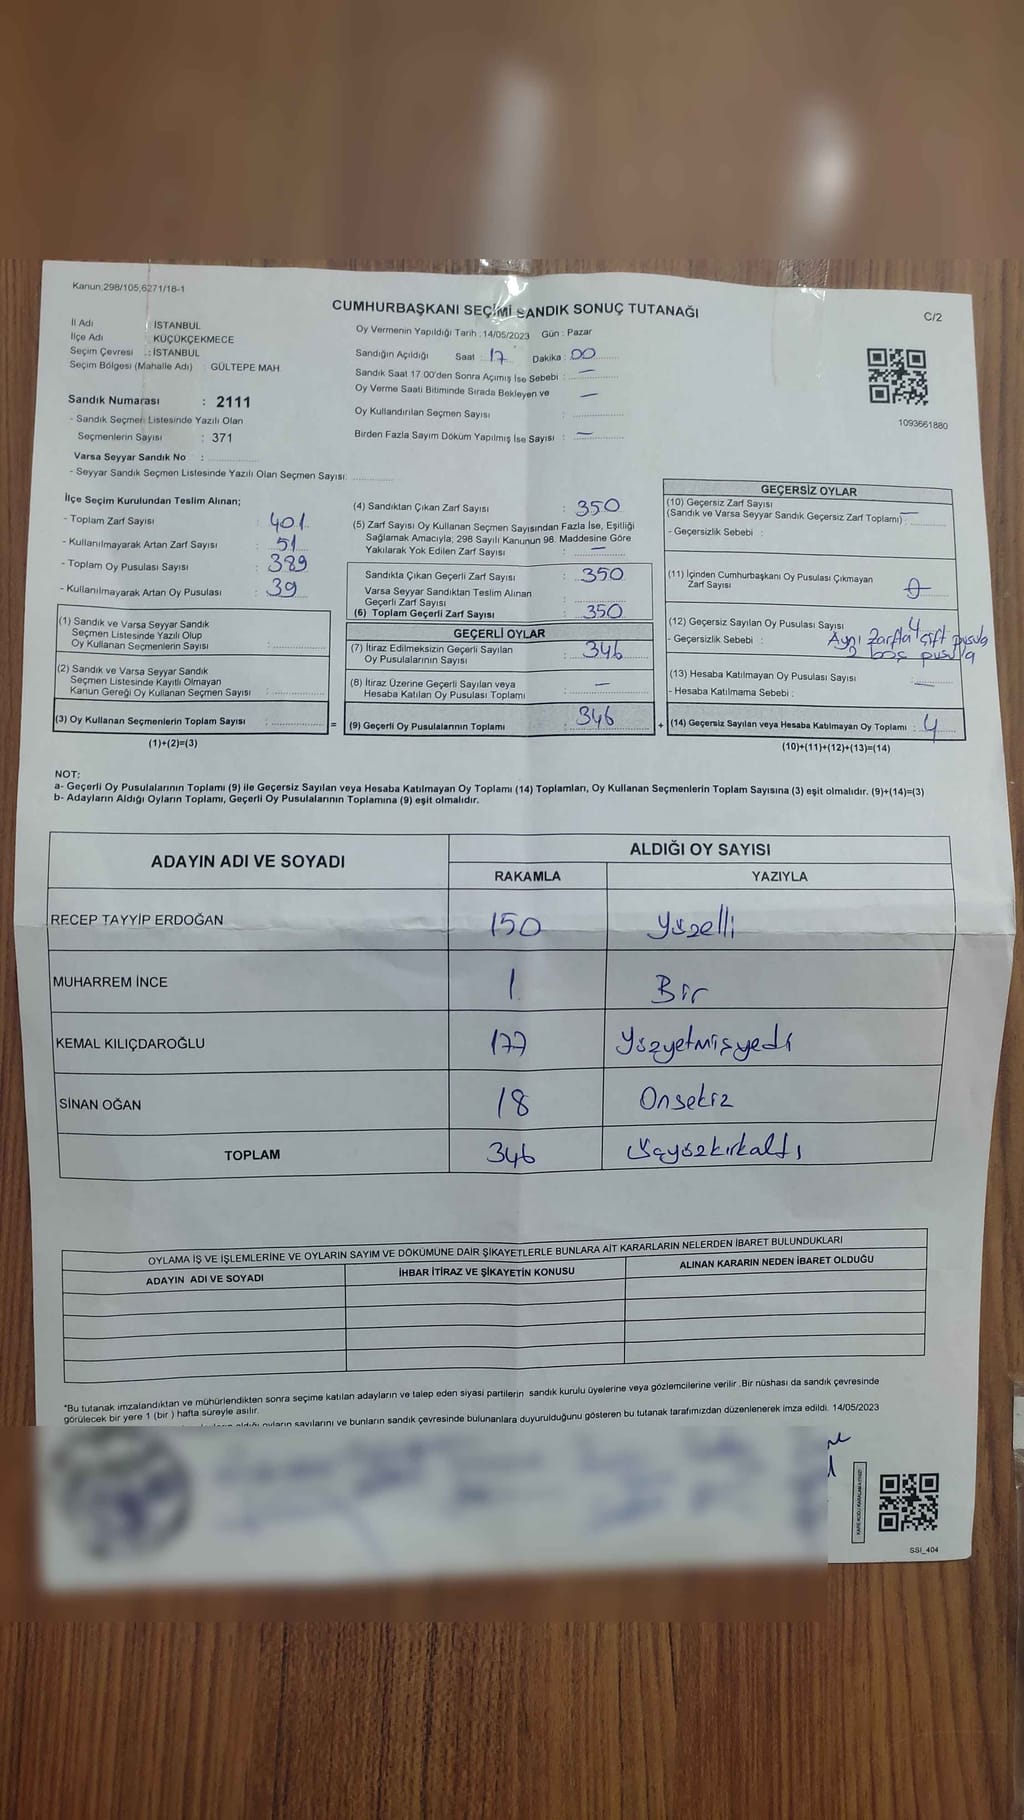 Kanun;298/105,6271/18-1
CUMHURBAŞKANI SEÇİMİ SANDIK SONUÇ TUTANAĞI
C/2
İl Adı İSTANBUL
İlçe Adı KÜÇÜKÇEKMECE
Seçim Çevresi .: İSTANBUL
Seçim Bölgesi (Mahalle Adı) : GÜLTEPE MAH
Sandık Numarası : 2111
- Sandık Seçmen Listesinde Yazılı Olan
Seçmenlerin Sayısı : 371
Varsa Seyyar Sandık No :
- Seyyar Sandık Seçmen Listesinde Yazılı Olan Seçmen Sayısı:
Oy Vermenin Yapıldığı Tarih : 14/05/2023 Gün : Pazar
Sandığın Açıldığı Saat : 17 Dakika : 00
Sandık Saat 17.00'den Sonra Açımış İse Sebebi : —
Oy Verme Saati Bitiminde Sırada Bekleyen ve —
Oy Kullandırılan Seçmen Sayısı :
Birden Fazla Sayım Döküm Yapılmış İse Sayısı : —
1093661880
İlçe Seçim Kurulundan Teslim Alınan;
- Toplam Zarf Sayısı : 401
- Kullanılmayarak Artan Zarf Sayısı : 51
- Toplam Oy Pusulası Sayısı : 389
- Kullanılmayarak Artan Oy Pusulası : 39
(1) Sandık ve Varsa Seyyar Sandık
Seçmen Listesinde Yazılı Olup
Oy Kullanan Seçmenlerin Sayısı :
(2) Sandık ve Varsa Seyyar Sandık
Seçmen Listesinde Kayıtlı Olmayan
Kanun Gereği Oy Kullanan Seçmen Sayısı :
(3) Oy Kullanan Seçmenlerin Toplam Sayısı : =
(1)+(2)=(3)
(4) Sandıktan Çıkan Zarf Sayısı : 350
(5) Zarf Sayısı Oy Kullanan Seçmen Sayısından Fazla İse, Eşitliği
Sağlamak Amacıyla; 298 Sayılı Kanunun 98. Maddesine Göre
Yakılarak Yok Edilen Zarf Sayısı : —
Sandıkta Çıkan Geçerli Zarf Sayısı : 350
Varsa Seyyar Sandıktan Teslim Alınan
Geçerli Zarf Sayısı :
(6) Toplam Geçerli Zarf Sayısı : 350
GEÇERLİ OYLAR
(7) İtiraz Edilmeksizin Geçerli Sayılan
Oy Pusulalarının Sayısı : 346
(8) İtiraz Üzerine Geçerli Sayılan veya
Hesaba Katılan Oy Pusulası Toplamı : —
(9) Geçerli Oy Pusulalarının Toplamı : 346 +
GEÇERSİZ OYLAR
(10) Geçersiz Zarf Sayısı
(Sandık ve Varsa Seyyar Sandık Geçersiz Zarf Toplamı) : —
- Geçersizlik Sebebi :
(11) İçinden Cumhurbaşkanı Oy Pusulası Çıkmayan
Zarf Sayısı : 0
(12) Geçersiz Sayılan Oy Pusulası Sayısı : 4
- Geçersizlik Sebebi : Aynı zarfta çift pusula
2 boş pusula
(13) Hesaba Katılmayan Oy Pusulası Sayısı : —
- Hesaba Katılmama Sebebi :
(14) Geçersiz Sayılan veya Hesaba Katılmayan Oy Toplamı : 4
(10)+(11)+(12)+(13)=(14)
NOT:
a- Geçerli Oy Pusulalarının Toplamı (9) ile Geçersiz Sayılan veya Hesaba Katılmayan Oy Toplamı (14) Toplamları, Oy Kullanan Seçmenlerin Toplam Sayısına (3) eşit olmalıdır. (9)+(14)=(3)
b- Adayların Aldığı Oyların Toplamı, Geçerli Oy Pusulalarının Toplamına (9) eşit olmalıdır.
ADAYIN ADI VE SOYADI ALDIĞI OY SAYISI
RAKAMLA YAZIYLA
RECEP TAYYİP ERDOĞAN 150 Yüzelli
MUHARREM İNCE 1 Bir
KEMAL KILIÇDAROĞLU 177 Yüzyetmişyedi
SİNAN OĞAN 18 Onsekiz
TOPLAM 346 Üçyüzkırkaltı
OYLAMA İŞ VE İŞLEMLERİNE VE OYLARIN SAYIM VE DÖKÜMÜNE DAİR ŞİKAYETLERLE BUNLARA AİT KARARLARIN NELERDEN İBARET BULUNDUKLARI
ADAYIN ADI VE SOYADI İHBAR İTİRAZ VE ŞİKAYETİN KONUSU ALINAN KARARIN NEDEN İBARET OLDUĞU
*Bu tutanak imzalandıktan ve mühürlendikten sonra seçime katılan adayların ve talep eden siyasi partilerin sandık kurulu üyelerine veya gözlemcilerine verilir .Bir nüshası da sandık çevresinde
görülecek bir yere 1 (bir ) hafta süreyle asılır.
aldığı oyların sayılarını ve bunların sandık çevresinde bulunanlara duyurulduğunu gösteren bu tutanak tarafımızdan düzenlenerek imza edildi. 14/05/2023
SSI_404